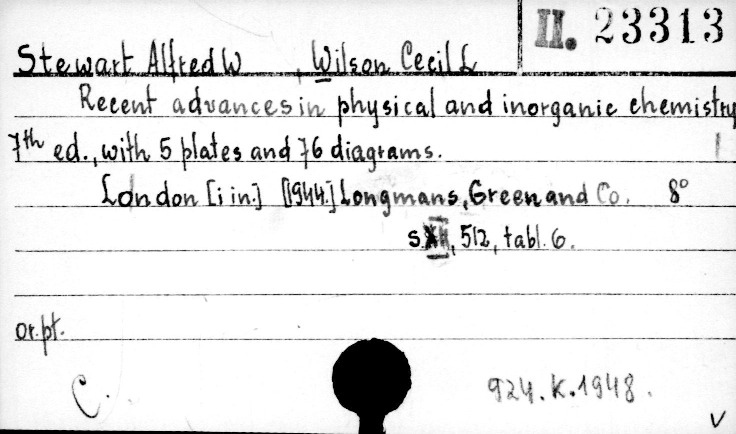 II. 23313
Stewart Alfred W , Wilson Cecil L
Recent advances in physical and inorganic chemistry
7th ed., with 5 plates and 76 diagrams.
London [i in.] [1944.] Longmans, Green and Co. 8°
s. XII, 512, tabl. 6.
or. pt.
C. 924. K. 1948.
V